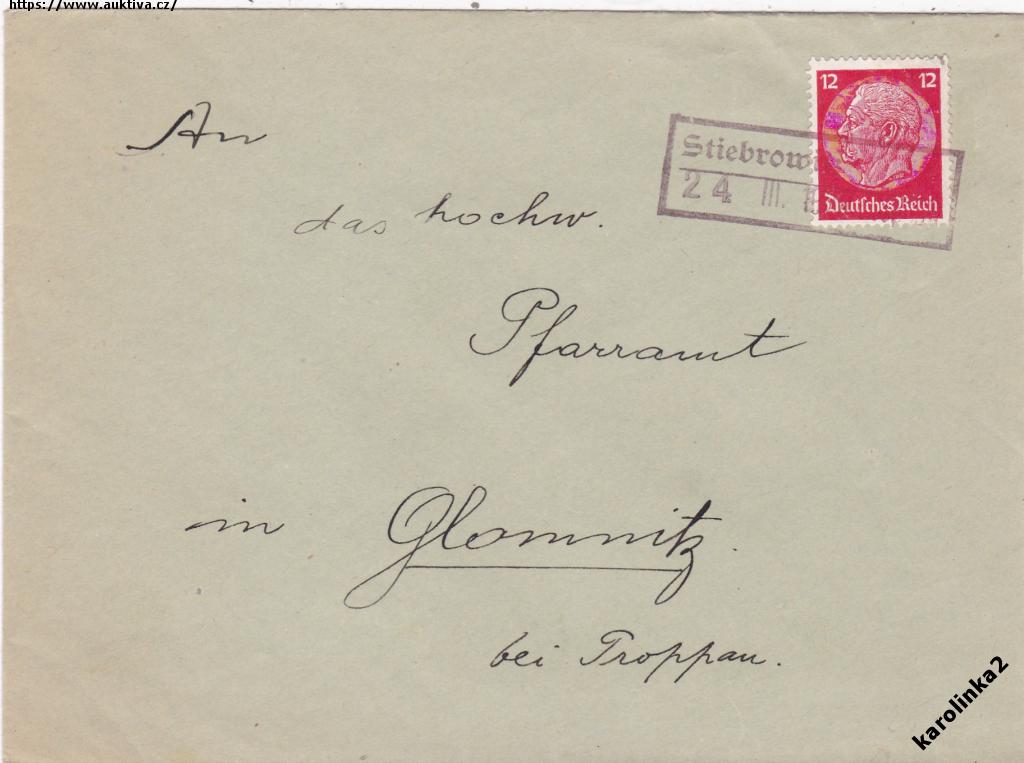 https://www.auktiva.cz/
12 12
Deutsches Reich
24 III.
An
das hochw.
Pfarramt
in Glomnitz.
bei Troppau.
karolinka2